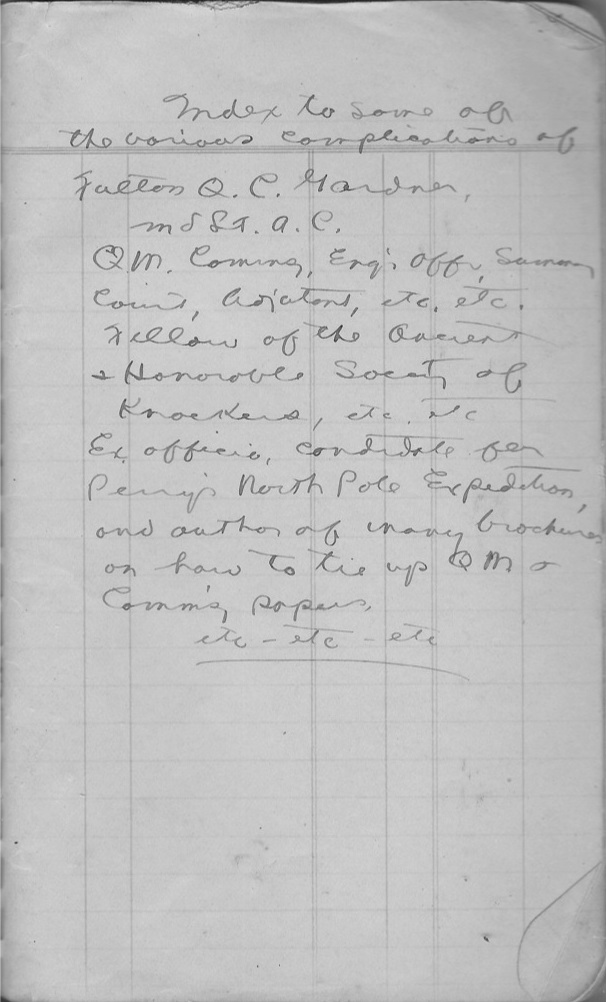 Index to some of
the various complications of
Fulton Q. C. Gardner,
Q M. Commsy, Eng'r Offr, Summary
Court, Adjutant, etc. etc.
Fellow of the Ancient
& Honorable Society of
Knockers, etc. etc
Ex officio, candidate for
Perry's North Pole Expedition,
and author of many brochures
on how to tie up Q M &
Comm'sy papers.
etc - etc - etc